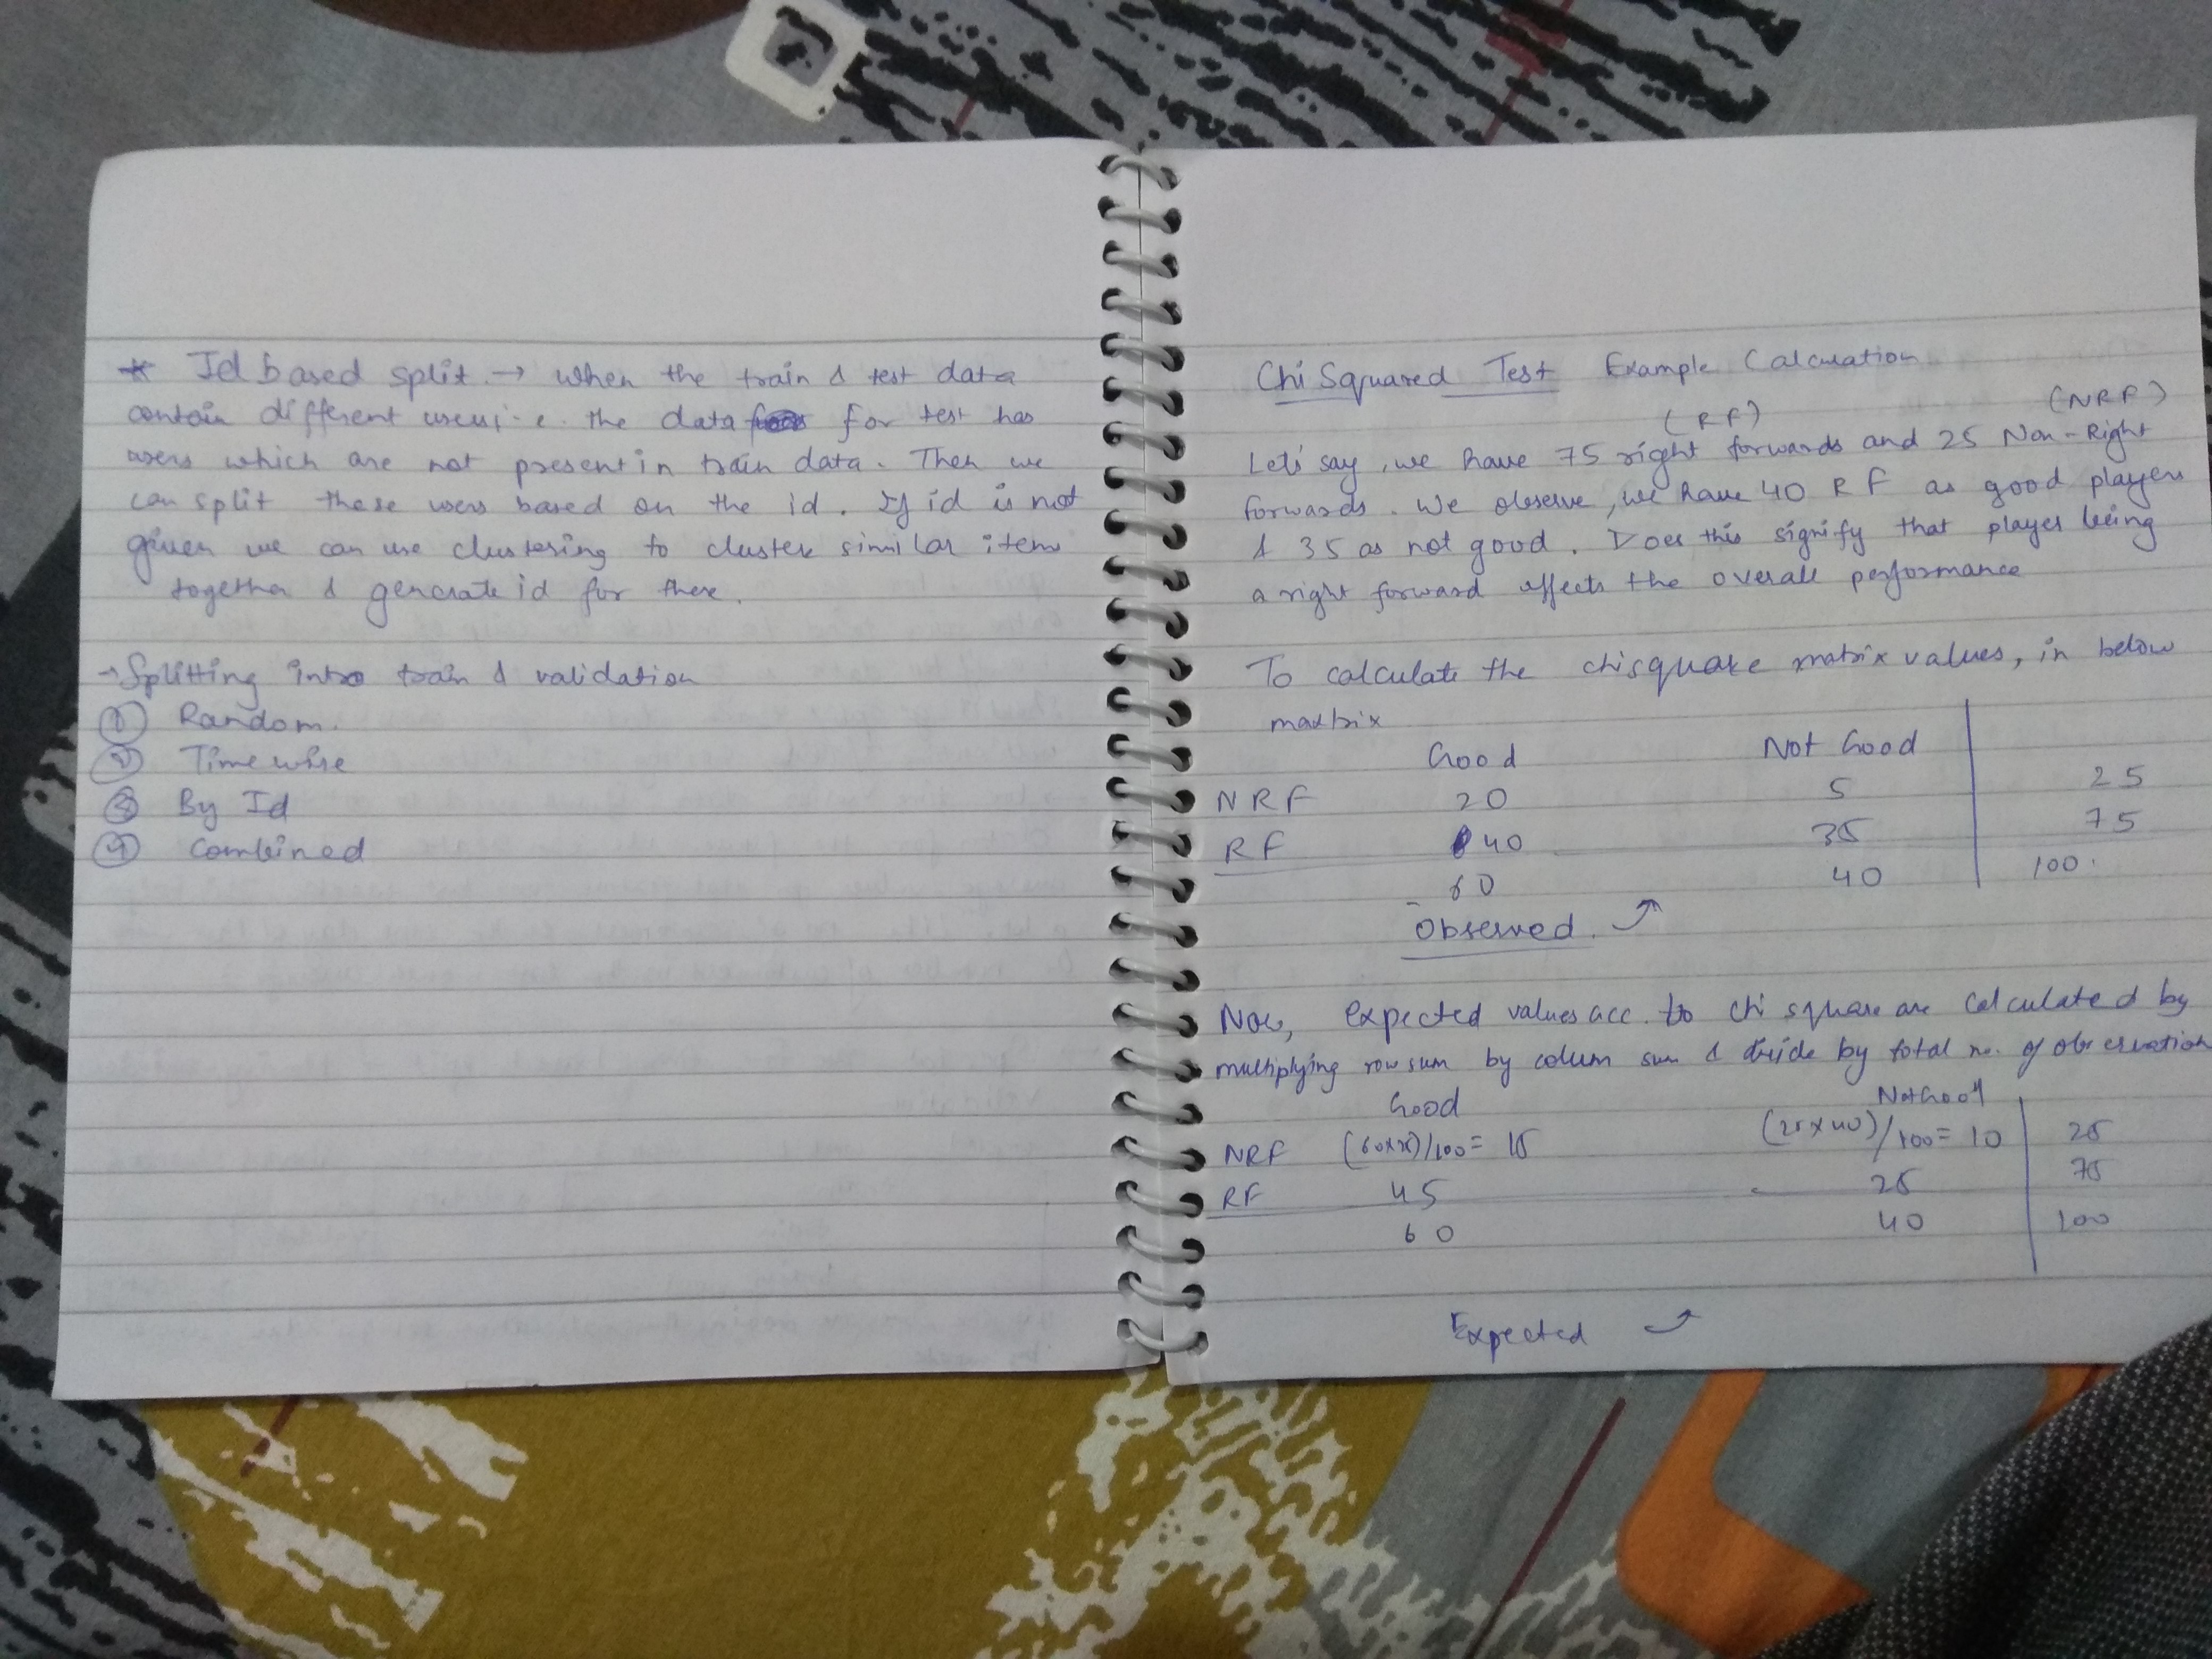 * Id based split → when the train & test data
contain different users i.e. the data for test has
users which are not present in train data. Then we
can split these users based on the id. If id is not
given we can use clustering to cluster similar items
together & generate id for there.
→ Splitting into train & validation
① Random.
② Timewise
③ By Id
④ Combined
Chi Squared Test Example Calculation
(RF) (NRF)
Let's say, we have 75 right forwards and 25 Non-Right
forwards. We observe, we have 40 RF as good players
& 35 as not good. Does this signify that player being
a right forward affects the overall performance
To calculate the chisquare matrix values, in below
matrix
Good Not Good
NRF 20 5 25
RF 40 35 75
60 40 100.
Observed.
Now, expected values acc. to chi square are calculated by
multiplying row sum by colum sum & divide by total no. of observation
Good Not Good
NRF (60x25)/100 = 15 (25x40)/100 = 10 25
RF 45 25 75
60 40 100
Expected